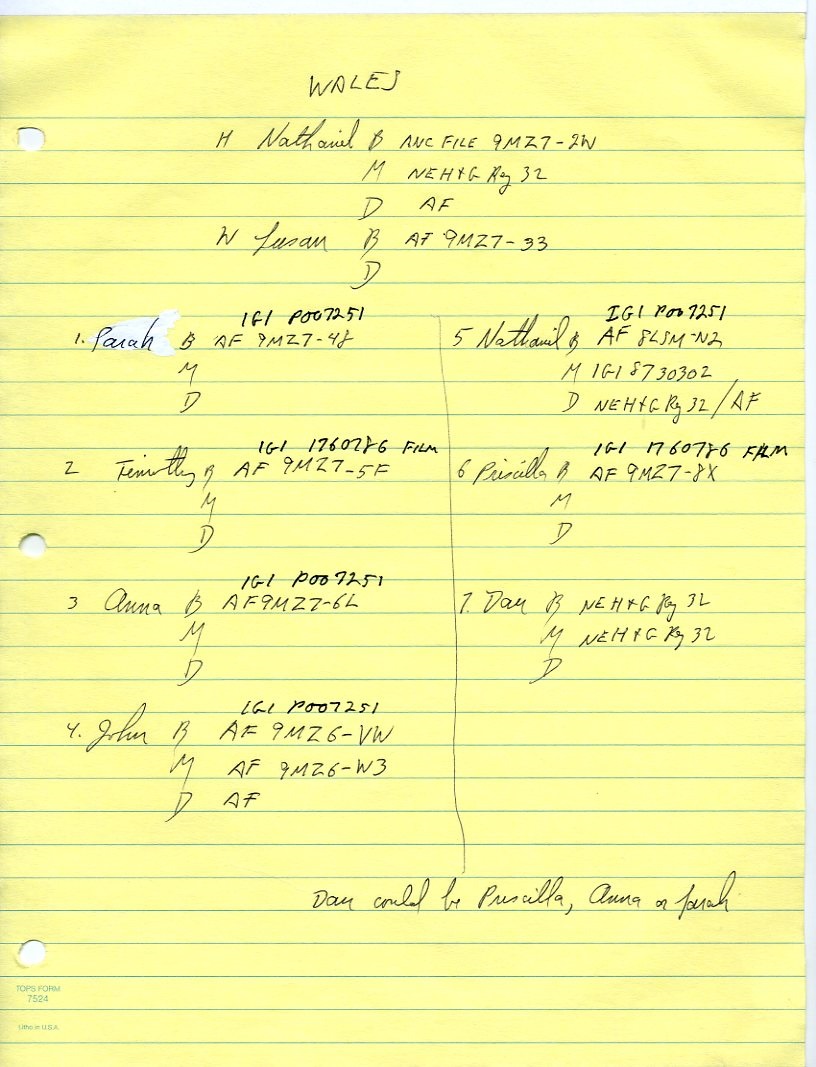 WALES
H Nathaniel B ANC FILE 9MZ7-2W
M NEH&G Reg 32
D AF
W Susan B AF 9MZ7-33
D
IGI P007251
1. Sarah B AF 9MZ7-48
M
D
IGI 1760786 FILM
2 Timothy B AF 9MZ7-5F
M
D
IGI P007251
3 Anna B AF 9MZ7-6L
M
D
IGI P007251
4. John B AF 9MZ6-VW
M AF 9MZ6-W3
D AF
IGI P007251
5 Nathaniel B AF 8LSM-N2
M IGI 8730302
D NEH&G Reg 32/AF
IGI 1760786 FILM
6 Priscilla B AF 9MZ7-8X
M
D
7. Dau B NEH&G Reg 32
M NEH&G Reg 32
D
Dau could be Priscilla, Anna or Sarah
TOPS FORM
7524
Litho in U.S.A.